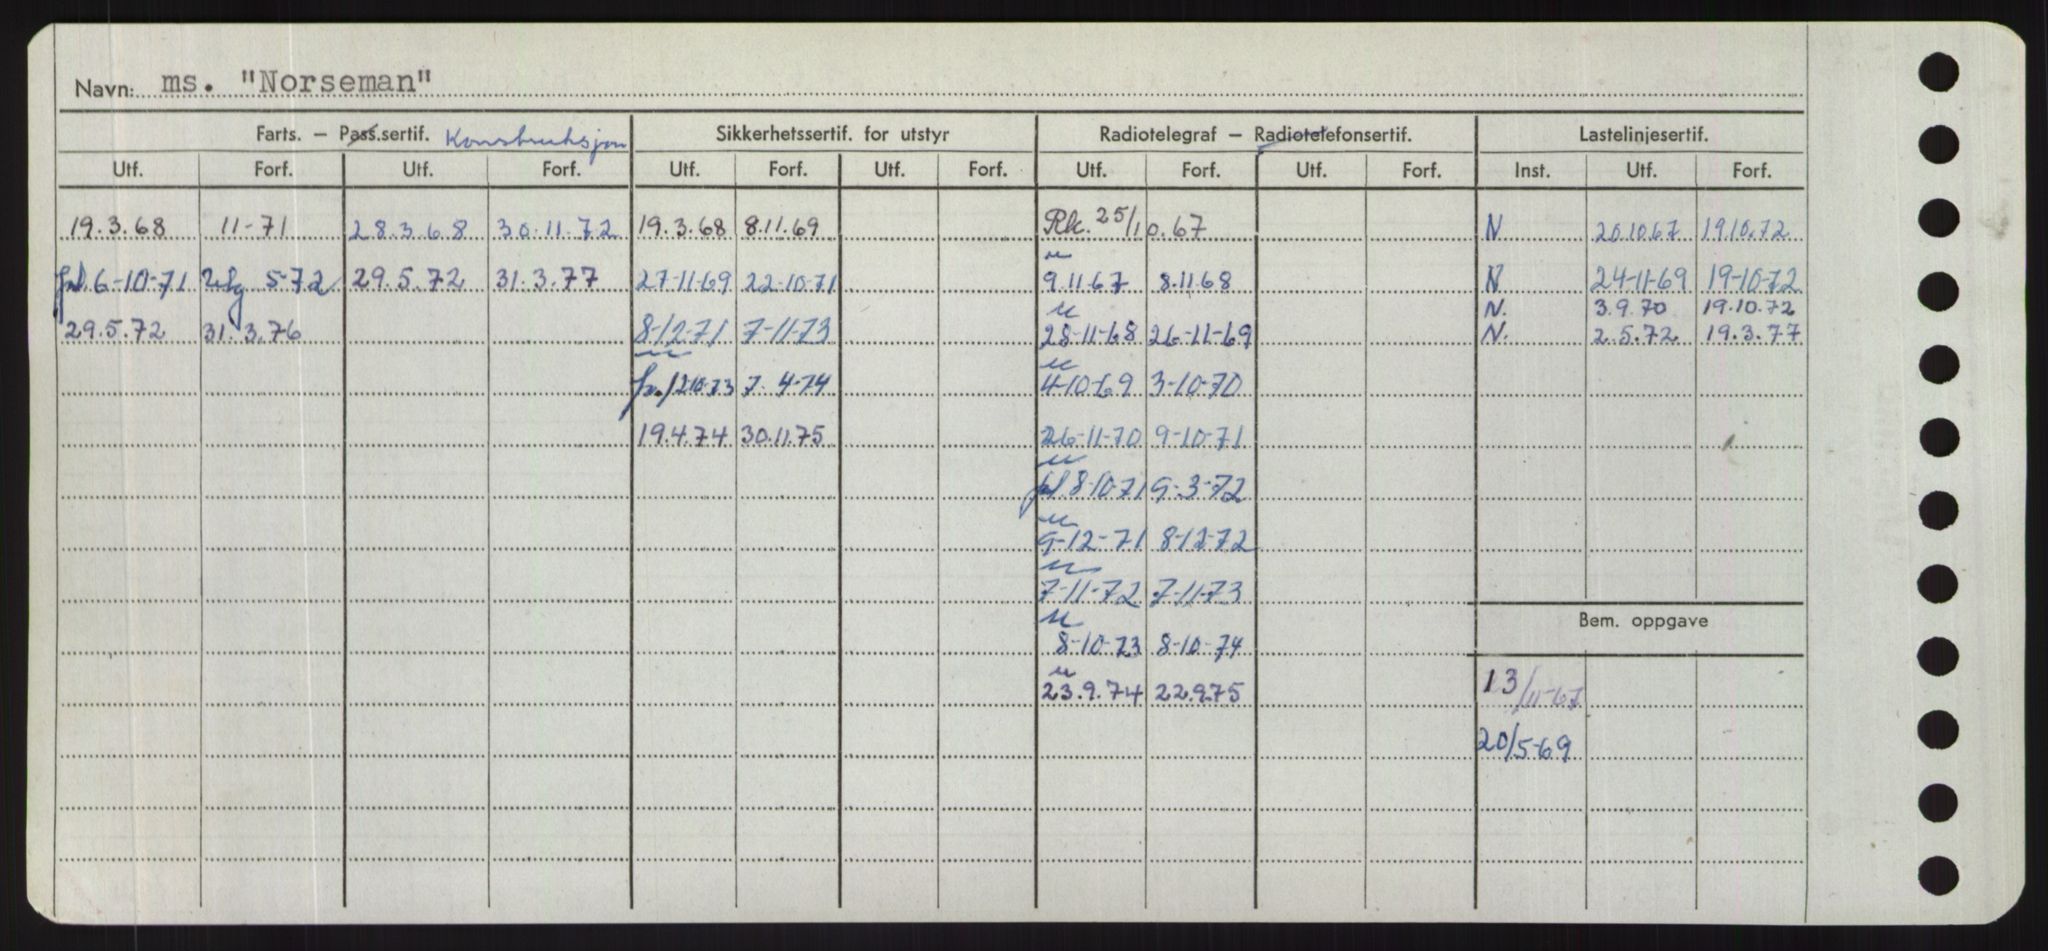 Navn: ms. "Norseman"
Farts. – Pass.sertif. Konstruksjon Sikkerhetssertif. for utstyr Radiotelegraf – Radiotelefonsertif. Lastelinjesertif.
Utf. Forf. Utf. Forf. Utf. Forf. Utf. Forf. Utf. Forf. Utf. Forf. Inst. Utf. Forf.
19.3.68 11-71 28.3.68 30.11.72 19.3.68 8.11.69 Rk. 25/10.67 N 20.10.67 19.10.72
6-10-71 5-72 29.5.72 31.3.77 27-11-69 22-10-71 9.11.67 8.11.68 N 24-11-69 19-10-72
N. 3.9.70 19.10.72
29.5.72 31.3.76 8-12-71 7-11-73 28-11-68 26-11-69 N. 2.5.72 19.3.77
2-10-73 7.4-74 4-10-69 3-10-70
19.4.74 30.11.75 26-11-70 9-10-71
8-10-71 9-3-72
9-12-71 8-12-72
7-11-72 7-11-73
Bem. oppgave
8-10-73 8-10-74
23.9.74 22.9.75 13/11-67
20/5-69